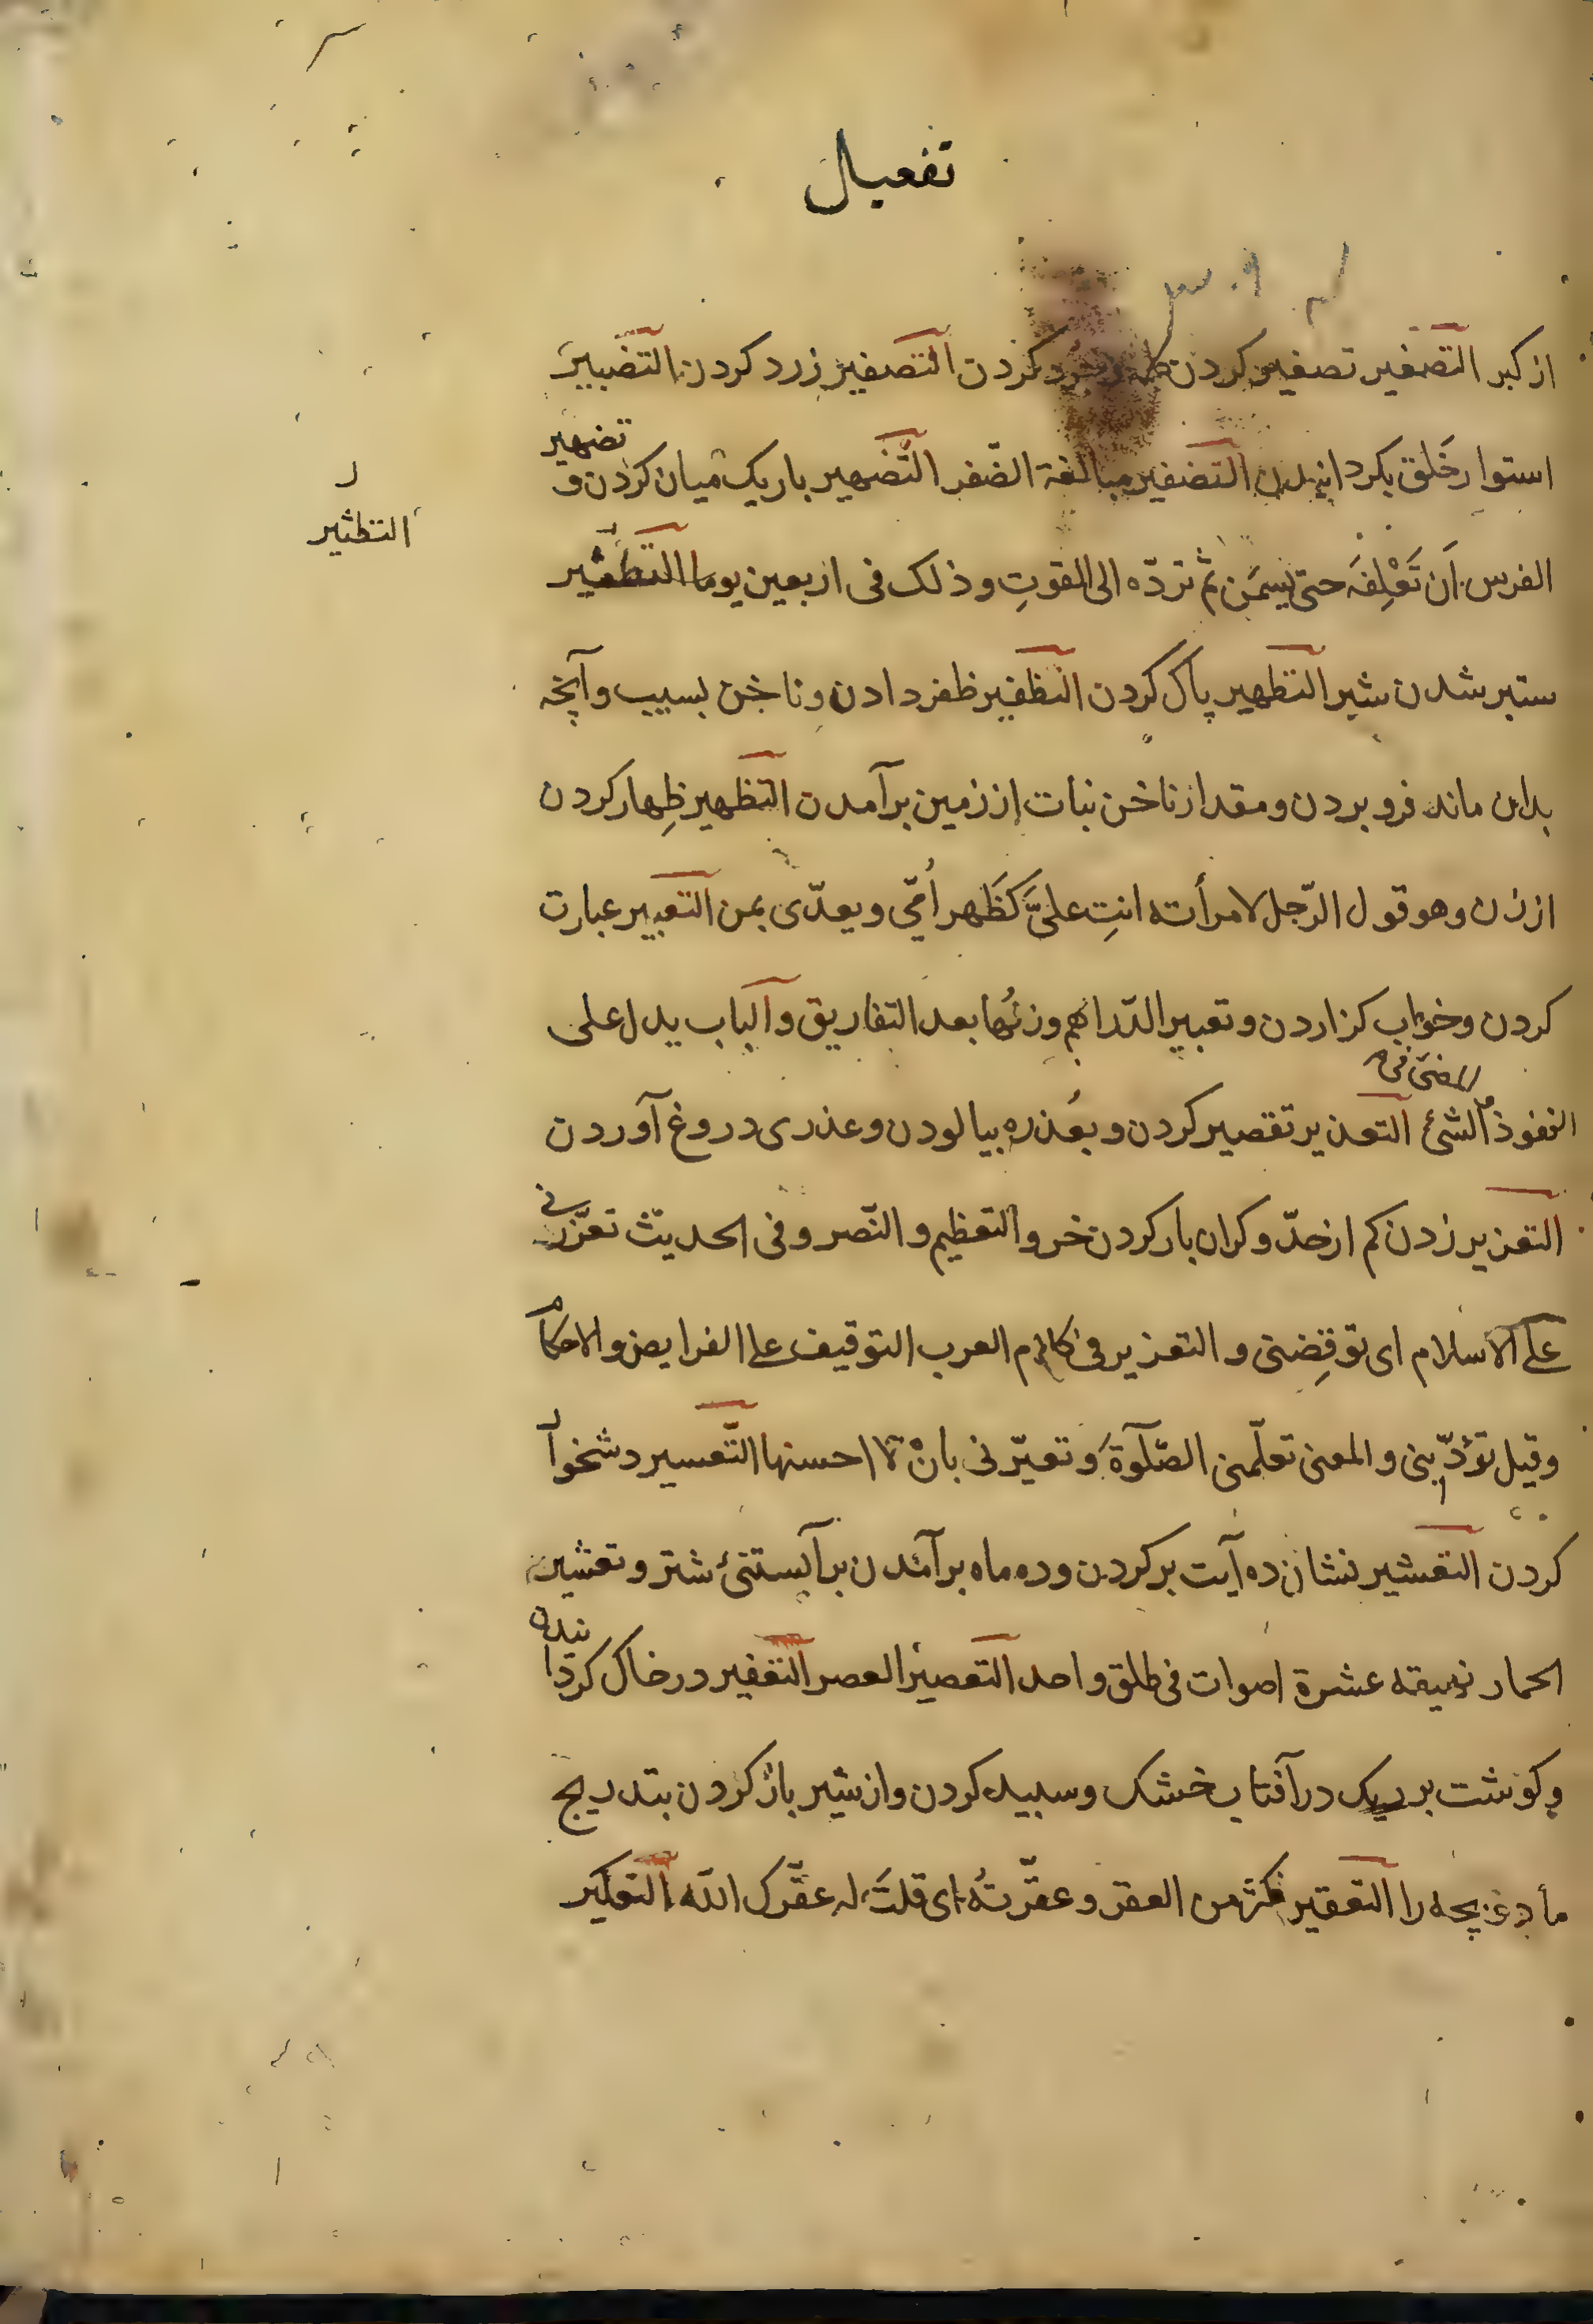 تفعیل
از کبر التصغیر تصغیر کردن کلمه و خرد کردن التصفیر زرد کردن التضبیر
استوار خلق بکردانیدن التضفیر مبالغة الضّفر التّضمیر باریک میان کردن و تضمیر
الفرس اَن تَعْلِفَه حتی یسمَن ثمّ تردّه الی القوتِ و ذلک فی اربعین یوما التطثیر
التطثیر
ستبر شدن شیر التطهیر پاک کردن التظفیر ظفر دادن و ناخن بسیب و آنچه
بدان ماند فرو بردن و مقدار ناخن نبات از زمین برآمدن التظهیر ظِهار کردن
از زن و هو قول الرّجل لامرأته انتِ علیَّ کَظَهر اُمّی و یعدّی بمن التعبیر عبارت
کردن و خواب کزاردن و تعبیر الدّراهم وزنُها بعد التفاریق و الباب یدل علی
النفوذ و المضیّ فی الشئ التعذیر تقصیر کردن و بعُذره بیالودن و عذری دروغ آوردن
التعزیر زدن کم از حدّ و کران بار کردن خر و التعظیم و النّصر و فی الحدیث تعزّرنی
علی الاسلام ای توقِفنی و التعزیر فی کلام العرب التوقیف علی الفرایض و الاحکام
و قیل تؤدّبنی و المعنی تعلّمنی الصّلوة و تعیّرنی بانْ لا احسنها التّعسیر دشخوار
کردن التعشیر نشان ده آیت بر کردن و ده ماه برآمدن بر آبستنئ شتر و تعشیر
الحمار نهیقه عشرة اصوات فی طلق واحد التعصیر العصر التعفیر در خاک کردانیدن
و کوشت بر ریک در آفتاب خشک و سبید کردن و از شیر باز کردن بتدریج
مادر بچه را التعقیر اکثر من العقر و عقّرتُه ای قلتَ له عقّرک الله التعکیر